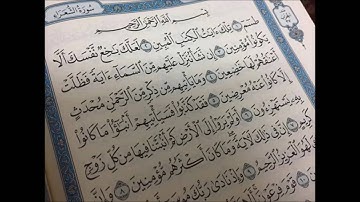 سُورَةُ الشُّعَرَاءِ
بِسْمِ اللَّهِ الرَّحْمَٰنِ الرَّحِيمِ
طسٓمٓ ١ تِلْكَ ءَايَٰتُ ٱلْكِتَٰبِ ٱلْمُبِينِ ٢ لَعَلَّكَ بَٰخِعٌ نَّفْسَكَ أَلَّا
يَكُونُوا۟ مُؤْمِنِينَ ٣ إِن نَّشَأْ نُنَزِّلْ عَلَيْهِم مِّنَ ٱلسَّمَآءِ ءَايَةً فَظَلَّتْ
أَعْنَٰقُهُمْ لَهَا خَٰضِعِينَ ٤ وَمَا يَأْتِيهِم مِّن ذِكْرٍ مِّنَ ٱلرَّحْمَٰنِ مُحْدَثٍ
إِلَّا كَانُوا۟ عَنْهُ مُعْرِضِينَ ٥ فَقَدْ كَذَّبُوا۟ فَسَيَأْتِيهِمْ أَنۢبَٰٓؤُا۟ مَا كَانُوا۟
بِهِۦ يَسْتَهْزِءُونَ ٦ أَوَلَمْ يَرَوْا۟ إِلَى ٱلْأَرْضِ كَمْ أَنۢبَتْنَا فِيهَا مِن كُلِّ زَوْجٍ
كَرِيمٍ ٧ إِنَّ فِى ذَٰلِكَ لَءَايَةً وَمَا كَانَ أَكْثَرُهُم مُّؤْمِنِينَ ٨ وَإِنَّ
لَهُوَ ٱلْعَزِيزُ ٱلرَّحِيمُ ٩ وَإِذْ نَادَىٰ رَبُّكَ مُوسَىٰٓ
قَوْمَ فِرْعَوْنَ